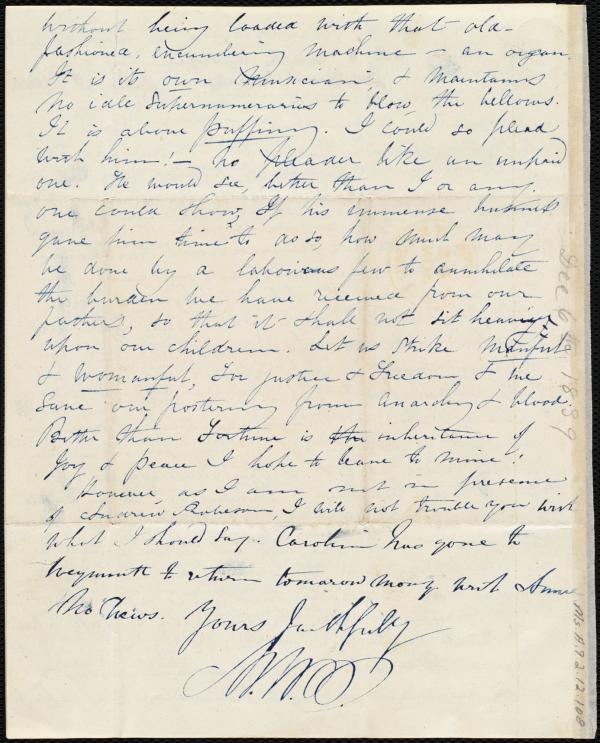 without being loaded with that old-
fashioned, encumbering machine – an organ.
It is its own musician, & maintains
no idle supernumeraries to blow the bellows.
It is above puffing. I could so plead
with him! – no pleader like an unpaid
one. He would see, better than I or any
one could show, if his immense business
gave him time to do so, how much may
be done by a laborious few to annihilate
the burden we have received from our
fathers, so that it shall not sit heavily
upon our children. Let us strike manful
& womanful, for justice & freedom & we
save our posterity from anarchy & blood.
Better than fortune is the inheritance of
joy & peace I hope to leave to mine!
However, as I am not in presence
of Andrew Robeson, I will not trouble you with
what I should say. Caroline has gone to
Weymouth to return tomorow morng with Anne
No news. Yours faithfully
M.W.C.
Dec 6 1839
Ms.A.9.2.12.108